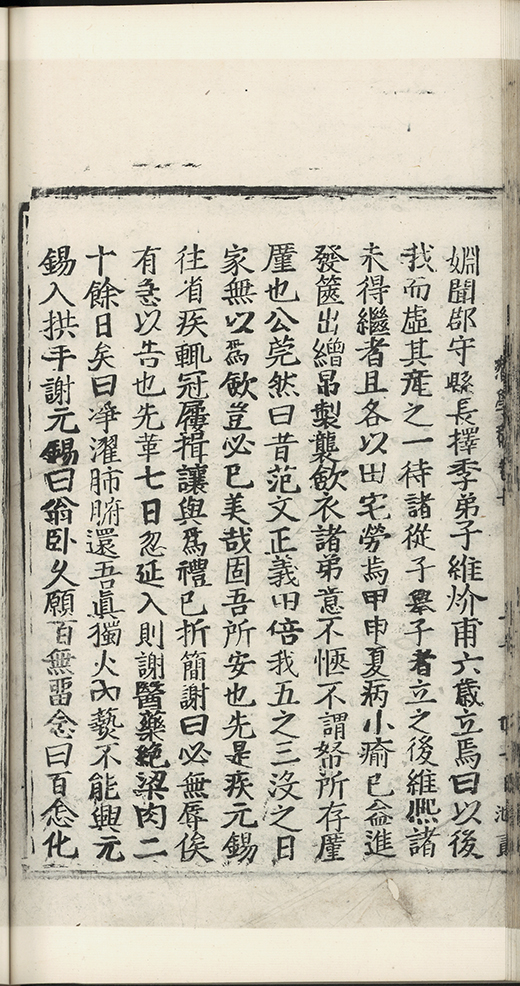 姻聞郡守縣長擇季弟子維炌甫六歲立焉曰以後
我而虛其產之一待諸從子舉子者立之後維熈諸
未得繼者且各以田宅勞焉甲申夏病小瘉已益進
發篋出繒帛製襲歛衣諸弟意不愜不謂帑所存厪
厪也公莞然曰昔范文正義田倍我五之三沒之日
家無以爲歛豈必已美哉固吾所安也先是疾元錫
往省疾輒冠屨揖讓與爲禮已折簡謝曰必無辱俟
有急以告也先革七日忽延入則謝醫藥絶粱肉二
十餘日矣曰凈濯肺腑還吾眞獨火內爇不能興元
錫入拱手謝元錫曰翁卧久願百無畱念曰百念化